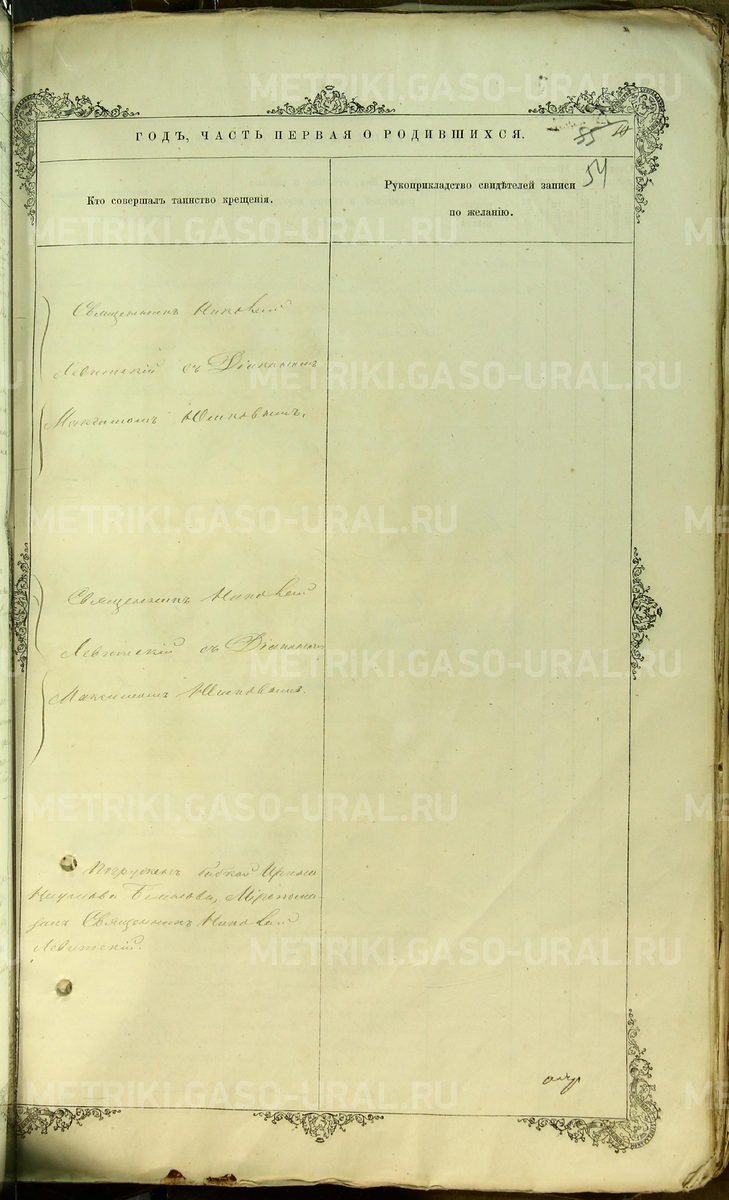 ГОДЪ, ЧАСТЬ ПЕРВАЯ О РОДИВШИХСЯ.
55
54
Кто совершалъ таинство крещенія.
Рукоприкладство свидѣтелей записи
по желанію.
Священникъ Николай
Левитскій съ Діакономъ
Максимомъ Юшковымъ.
Священникъ Николай
Левитскій съ Діакономъ
Максимомъ Юшковымъ.
Погруженъ бабкой
Мѵропома-
занъ Священникъ Николай
Левитскій.
METRIKI.GASO-URAL.RU